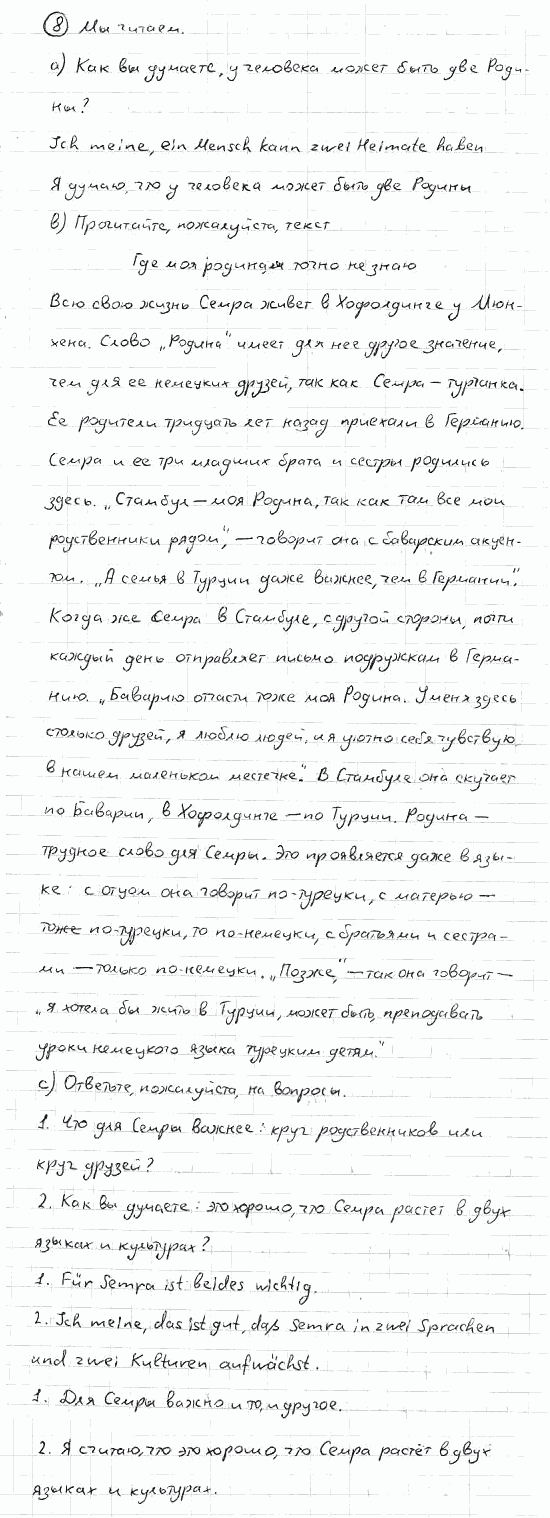 8 Мы читаем.
а) Как вы думаете, у человека может быть две Роди-
ны?
Ich meine, ein Mensch kann zwei Heimate haben
Я думаю, что у человека может быть две Родины
в) Прочитайте, пожалуйста, текст
Где моя родина, я точно не знаю
Всю свою жизнь Семра живет в Хофолдинге у Мюн-
хена. Слово „Родина" имеет для нее другое значение,
чем для ее немецких друзей, так как Семра – турчанка.
Ее родители тридцать лет назад приехали в Германию.
Семра и ее три младших брата и сестры родились
здесь. „Стамбул – моя Родина, так как там все мои
родственники рядом", – говорит она с баварским акцен-
том. „А семья в Турции даже важнее, чем в Германии".
Когда же Семра в Стамбуле, с другой стороны, почти
каждый день отправляет письмо подружкам в Герма-
нию. „Бавария отчасти тоже моя Родина. У меня здесь
столько друзей, я люблю людей, и я уютно себя чувствую
в нашем маленьком местечке". В Стамбуле она скучает
по Баварии, в Хофолдинге – по Турции. Родина –
трудное слово для Семры. Это проявляется даже в язы-
ке: с отцом она говорит по-турецки, с матерью –
тоже по-турецки, то по-немецки, с братьями и сестра-
ми – только по-немецки. „Позже," – так она говорит –
„я хотела бы жить в Турции, может быть, преподавать
уроки немецкого языка турецким детям."
с) Ответьте, пожалуйста, на вопросы.
1. Что для Семры важнее: круг родственников или
круг друзей?
2. Как вы думаете: это хорошо, что Семра растет в двух
языках и культурах?
1. Für Semra ist beides wichtig.
2. Ich meine, das ist gut, daß Semra in zwei Sprachen
und zwei Kulturen aufwächst.
1. Для Семры важно и то, и другое.
2. Я считаю, что это хорошо, что Семра растёт в двух
языках и культурах.